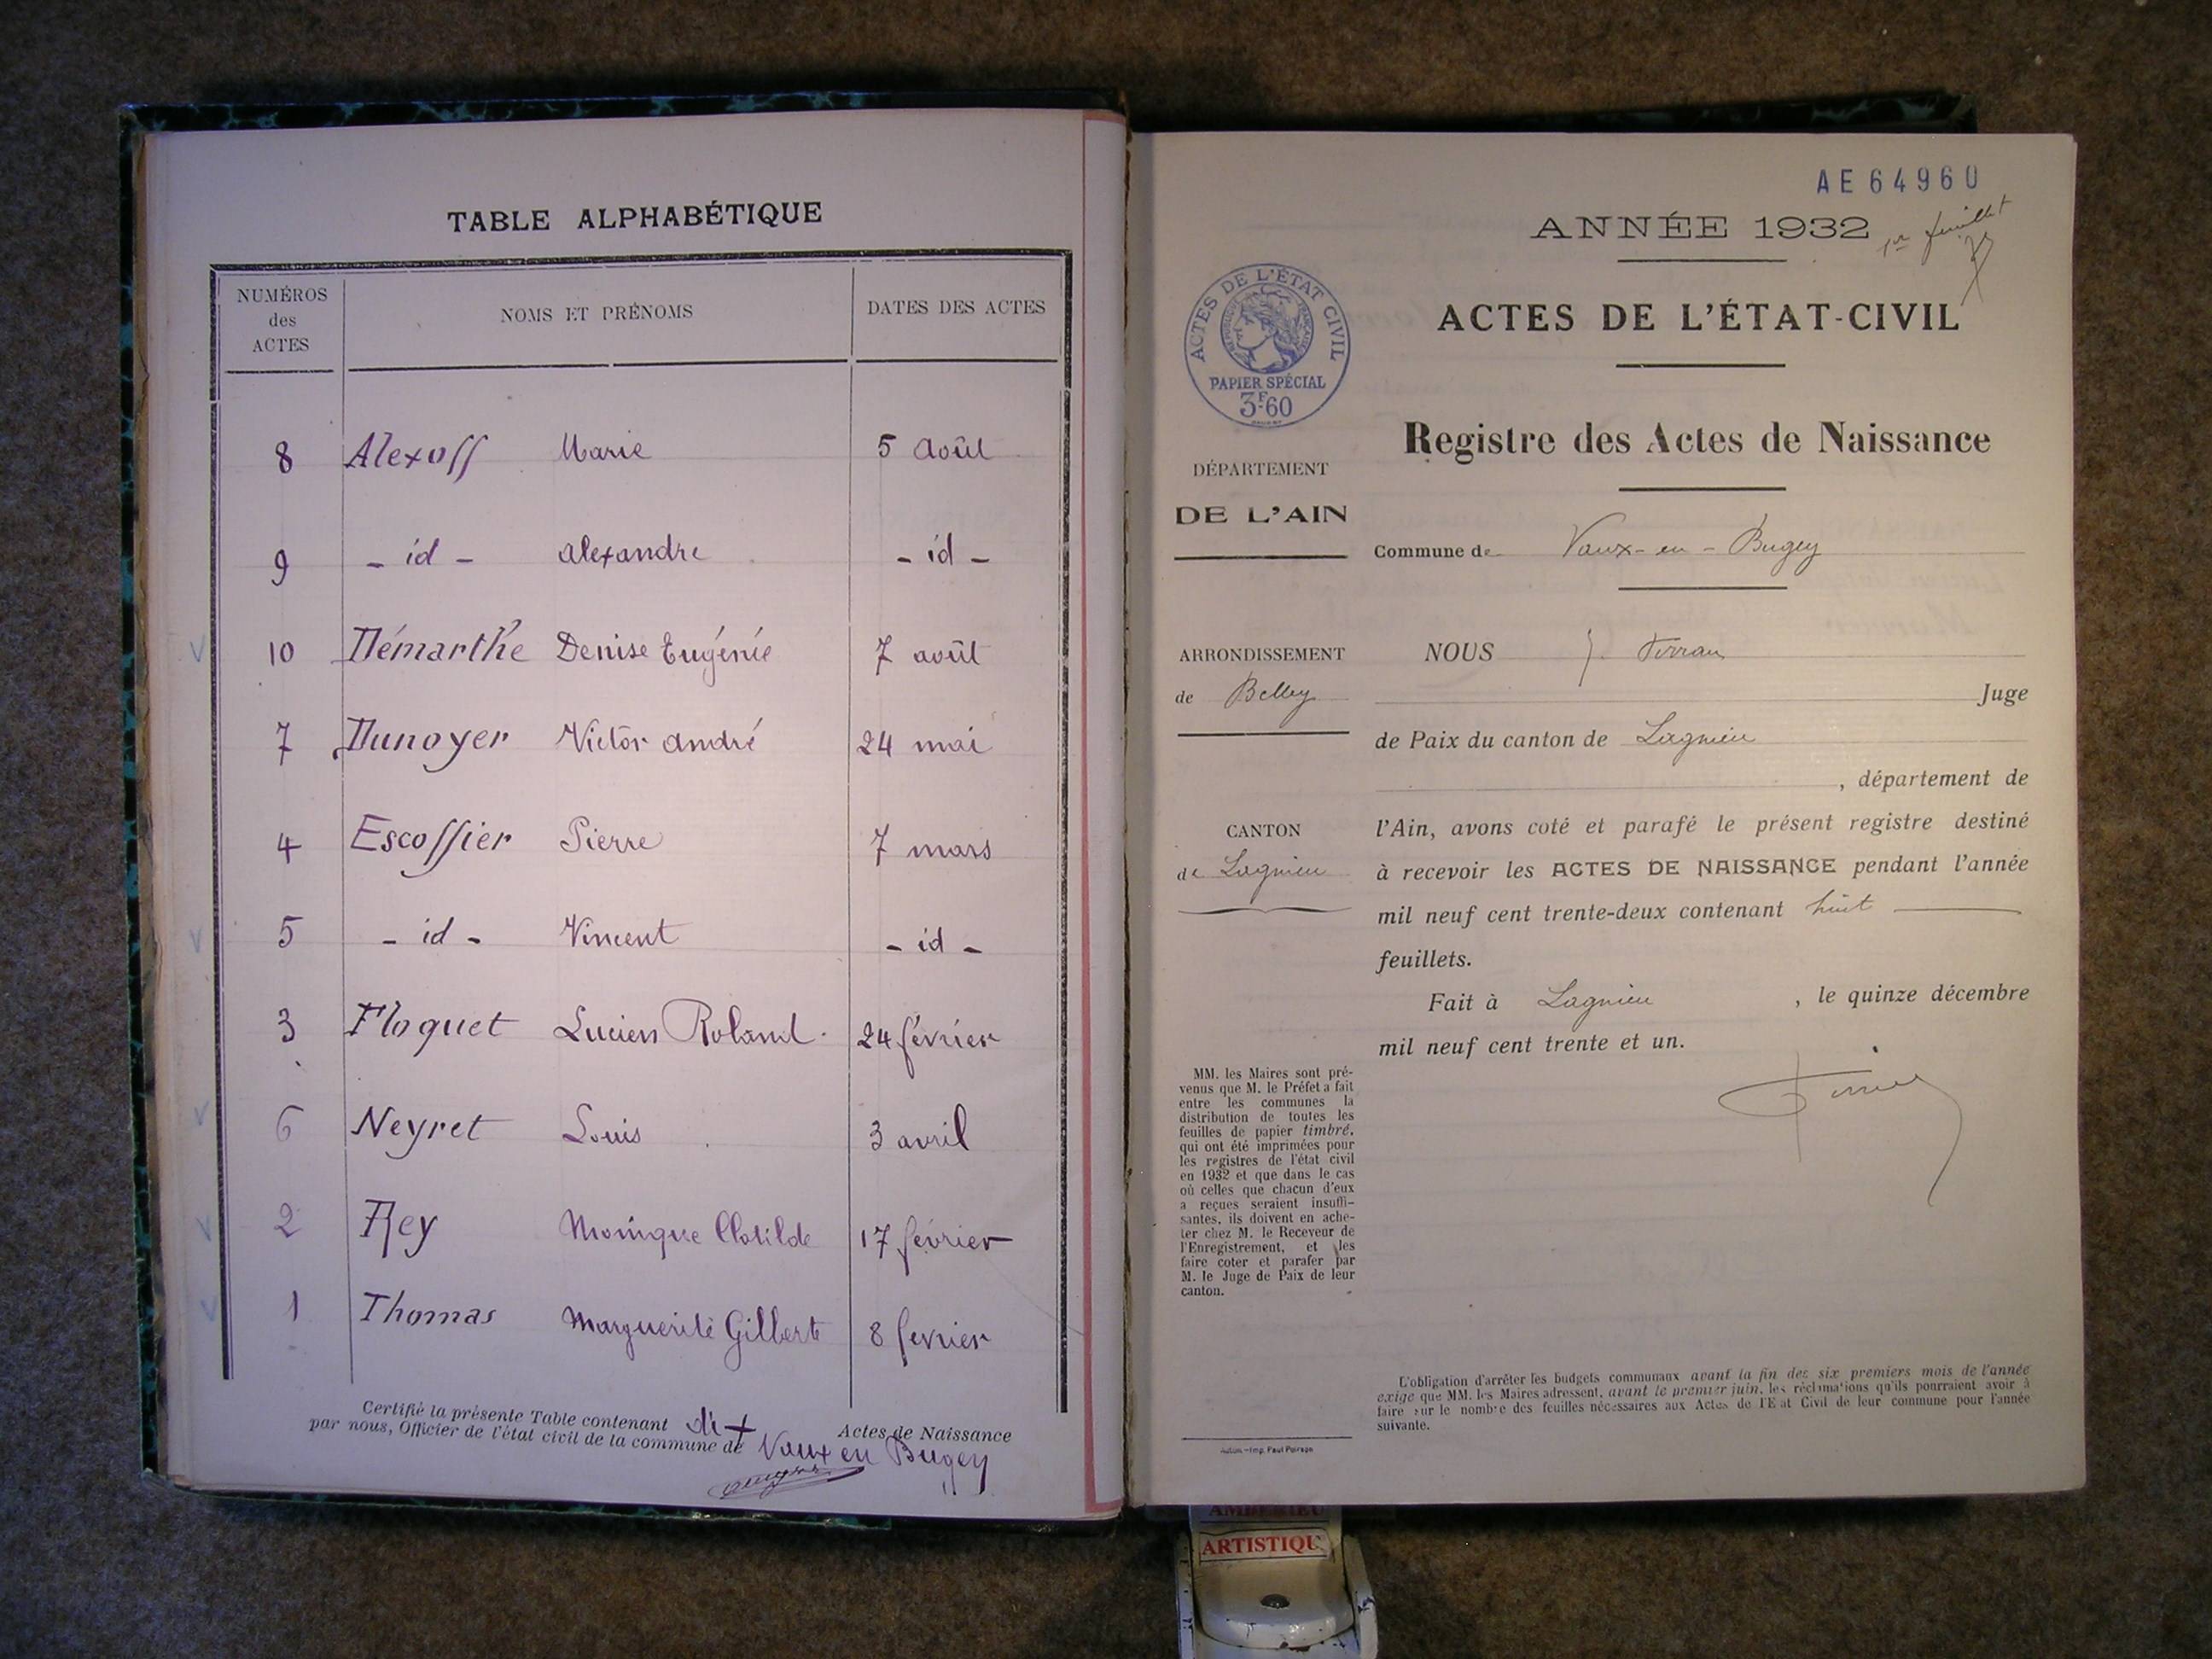 TABLE ALPHABÉTIQUE
NUMÉROS
des
ACTES
NOMS ET PRÉNOMS
DATES DES ACTES
8 Alexoff Marie 5 Août
9 - id - Alexandre - id -
10 Démarthe Denise Eugénie 7 août
7 Dunoyer Victor André 24 mai
4 Escoffier Pierre 7 mars
5 - id - Vincent - id -
3 Floquet Lucien Roland 24 février
6 Neyret Louis 3 avril
2 Rey Monique Clotilde 17 février
1 Thomas Marguerite Gilberte 8 fevrier
Certifié la présente Table contenant dix Actes de Naissance
par nous, Officier de l'état civil de la commune de Vaux en Bugey
AE 64960
ANNÉE 1932 1er feuillet
ACTES DE L'ÉTAT-CIVIL
ACTES DE L'ÉTAT CIVIL
RÉPUBLIQUE FRANÇAISE
PAPIER SPÉCIAL
3F60
Registre des Actes de Naissance
DÉPARTEMENT
DE L'AIN
Commune de Vaux-en-Bugey
ARRONDISSEMENT
de Belley
NOUS J.
Juge
de Paix du canton de Lagnieu
, département de
CANTON
de Lagnieu
l'Ain, avons coté et parafé le présent registre destiné
à recevoir les ACTES DE NAISSANCE pendant l'année
mil neuf cent trente-deux contenant huit
feuillets.
Fait à Lagnieu , le quinze décembre
mil neuf cent trente et un.
MM. les Maires sont pré-
venus que M. le Préfet a fait
entre les communes la
distribution de toutes les
feuilles de papier timbré,
qui ont été imprimées pour
les registres de l'état civil
en 1932 et que dans le cas
où celles que chacun d'eux
a reçues seraient insuffi-
santes, ils doivent en ache-
ter chez M. le Receveur de
l'Enregistrement, et les
faire coter et parafer par
M. le Juge de Paix de leur
canton.
L'obligation d'arrêter les budgets communaux avant la fin des six premiers mois de l'année
exige que MM. les Maires adressent, avant le premier juin, les réclamations qu'ils pourraient avoir à
faire sur le nombre des feuilles nécessaires aux Actes de l'Etat Civil de leur commune pour l'année
suivante.
Imp. Paul
AMBERIEU
ARTISTIQU